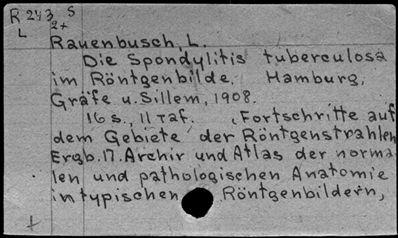 R 243 S
L 2+
Rauenbusch, L.
Die Spondylitis tuberculosa
im Röntgenbilde. Hamburg,
Gräfe u. Sillem, 1908.
16 s., 11 Taf. (Fortschritte auf
dem Gebiete der Röntgenstrahlen
Ergb. 17. Archir und Atlas der norma-
len und pathologischen Anatomie
in typischen Röntgenbildern,